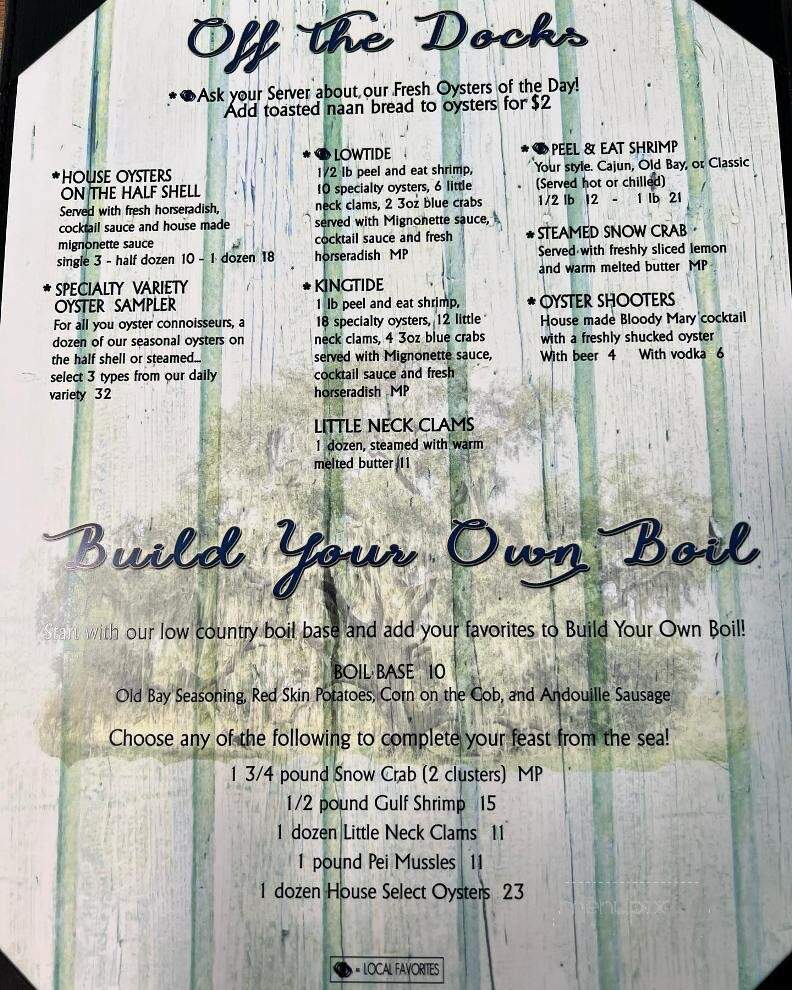 Off the Docks
* Ask your Server about our Fresh Oysters of the Day!
Add toasted naan bread to oysters for $2
*HOUSE OYSTERS
ON THE HALF SHELL
Served with fresh horseradish,
cocktail sauce and house made
mignonette sauce
single 3 - half dozen 10 - 1 dozen 18
* SPECIALTY VARIETY
OYSTER SAMPLER
For all you oyster connoisseurs, a
dozen of our seasonal oysters on
the half shell or steamed...
select 3 types from our daily
variety 32
* LOWTIDE
1/2 lb peel and eat shrimp,
10 specialty oysters, 6 little
neck clams, 2 3oz blue crabs
served with Mignonette sauce,
cocktail sauce and fresh
horseradish MP
* KINGTIDE
1 lb peel and eat shrimp,
18 specialty oysters, 12 little
neck clams, 4 3oz blue crabs
served with Mignonette sauce,
cocktail sauce and fresh
horseradish MP
LITTLE NECK CLAMS
1 dozen, steamed with warm
melted butter 11
* PEEL & EAT SHRIMP
Your style. Cajun, Old Bay, or Classic
(Served hot or chilled)
1/2 lb 12 - 1 lb 21
* STEAMED SNOW CRAB
Served with freshly sliced lemon
and warm melted butter MP
* OYSTER SHOOTERS
House made Bloody Mary cocktail
with a freshly shucked oyster
With beer 4 With vodka 6
Build Your Own Boil
Start with our low country boil base and add your favorites to Build Your Own Boil!
BOIL BASE 10
Old Bay Seasoning, Red Skin Potatoes, Corn on the Cob, and Andouille Sausage
Choose any of the following to complete your feast from the sea!
1 3/4 pound Snow Crab (2 clusters) MP
1/2 pound Gulf Shrimp 15
1 dozen Little Neck Clams 11
1 pound Pei Mussles 11
1 dozen House Select Oysters 23
menupix
= LOCAL FAVORITES